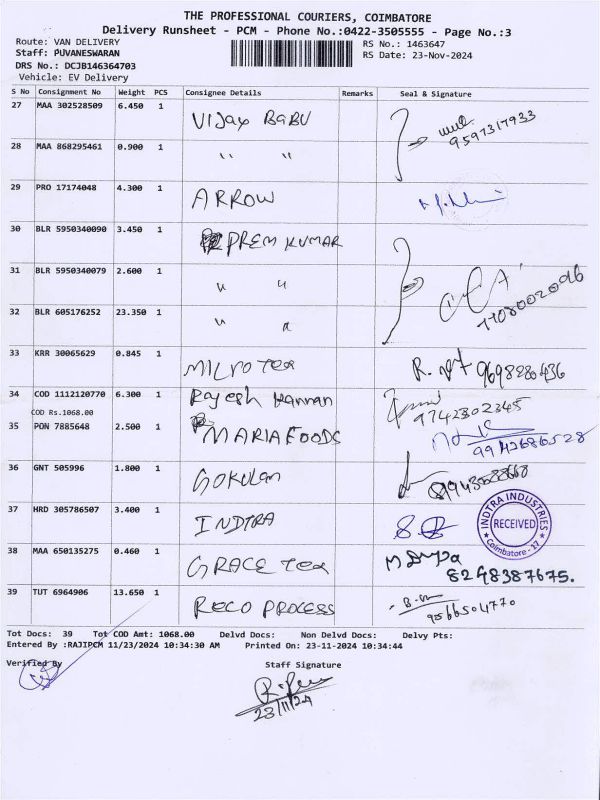 THE PROFESSIONAL COURIERS, COIMBATORE
Delivery Runsheet - PCM - Phone No.:0422-3505555 - Page No.:3
Route: VAN DELIVERY
Staff: PUVANESWARAN
DRS No.: DCJB146364703
Vehicle: EV Delivery
RS No.: 1463647
RS Date: 23-Nov-2024
S No Consignment No Weight PCS Consignee Details Remarks Seal & Signature
27 MAA 302528509 6.450 1 Vijay BABU 9597317933
28 MAA 868295461 0.900 1 " "
29 PRO 17174048 4.300 1 ARROW
30 BLR 5950340090 3.450 1 PREM KUMAR
31 BLR 5950340079 2.600 1 " "
32 BLR 605176252 23.350 1 " "
33 KRR 30065629 0.845 1 MICRO Tex
34 COD 1112120770 6.300 1 Rajesh Kannan 9742302345
COD Rs.1068.00
35 PON 7885648 2.500 1 MARIA FOODS 9942686528
36 GNT 505996 1.800 1 GOKULAN
37 HRD 305786507 3.400 1 INDTRA
INDTRA INDUSTRIES
RECEIVED
Coimbatore - 17
38 MAA 650135275 0.460 1 GRACE Tex 8248387675.
39 TUT 6964906 13.650 1 RECO PROCESS 9566504770
Tot Docs: 39 Tot COD Amt: 1068.00 Delvd Docs: Non Delvd Docs: Delvy Pts:
Entered By :RAJIPCM 11/23/2024 10:34:30 AM Printed On: 23-11-2024 10:34:44
Verified By Staff Signature
23/11/24